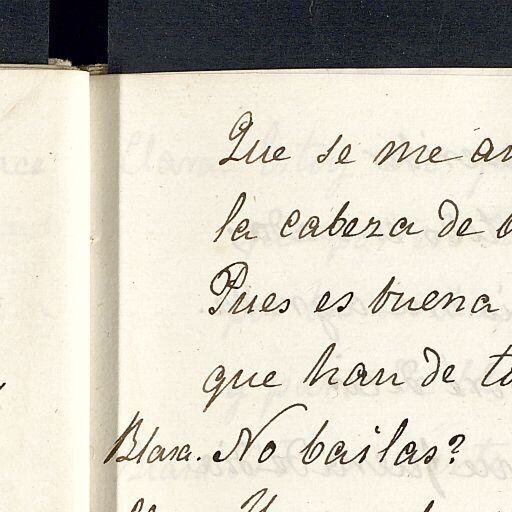 Que se me an
la cabeza de
Pues es buena
que han de to
Blasa. No bailas?